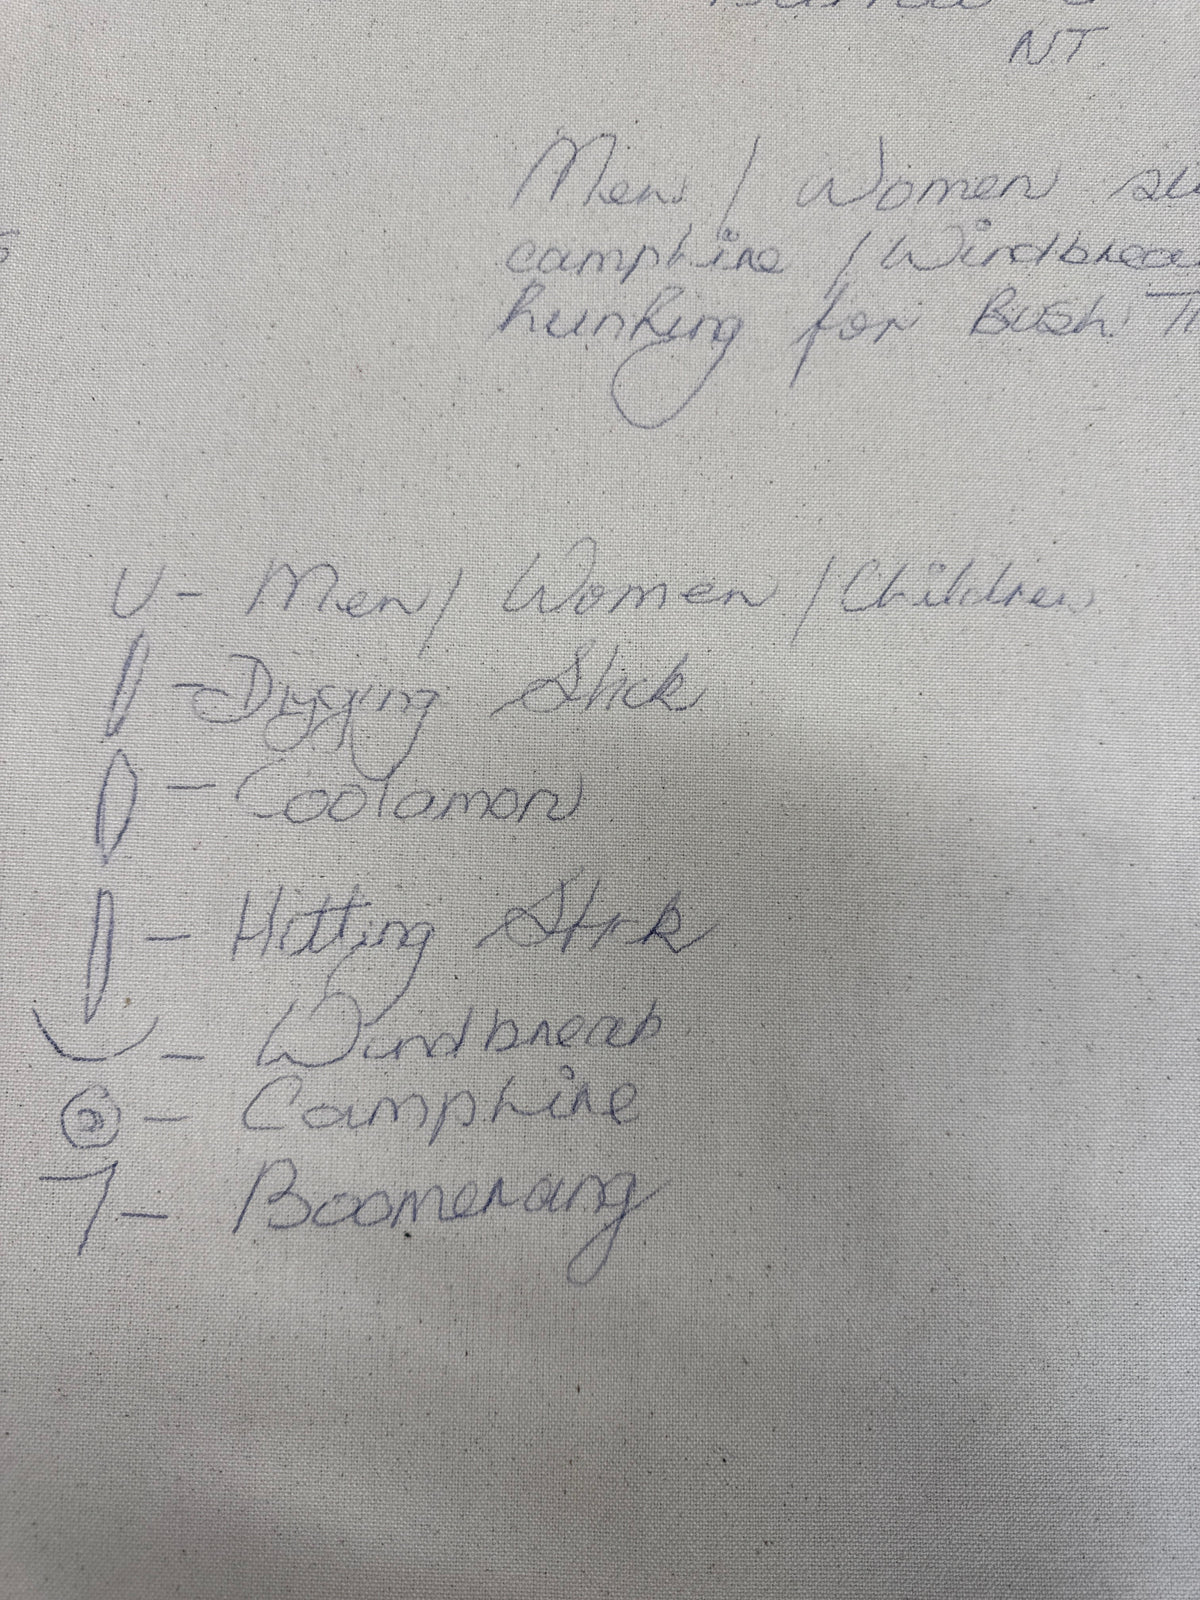 N.T.
Men / Women
campfire / Windbrea
hunting for Bush
U - Men / Women / Children
- Digging Stick
- Coolamon
- Hitting Stick
- Windbreak
- Campfire
- Boomerang